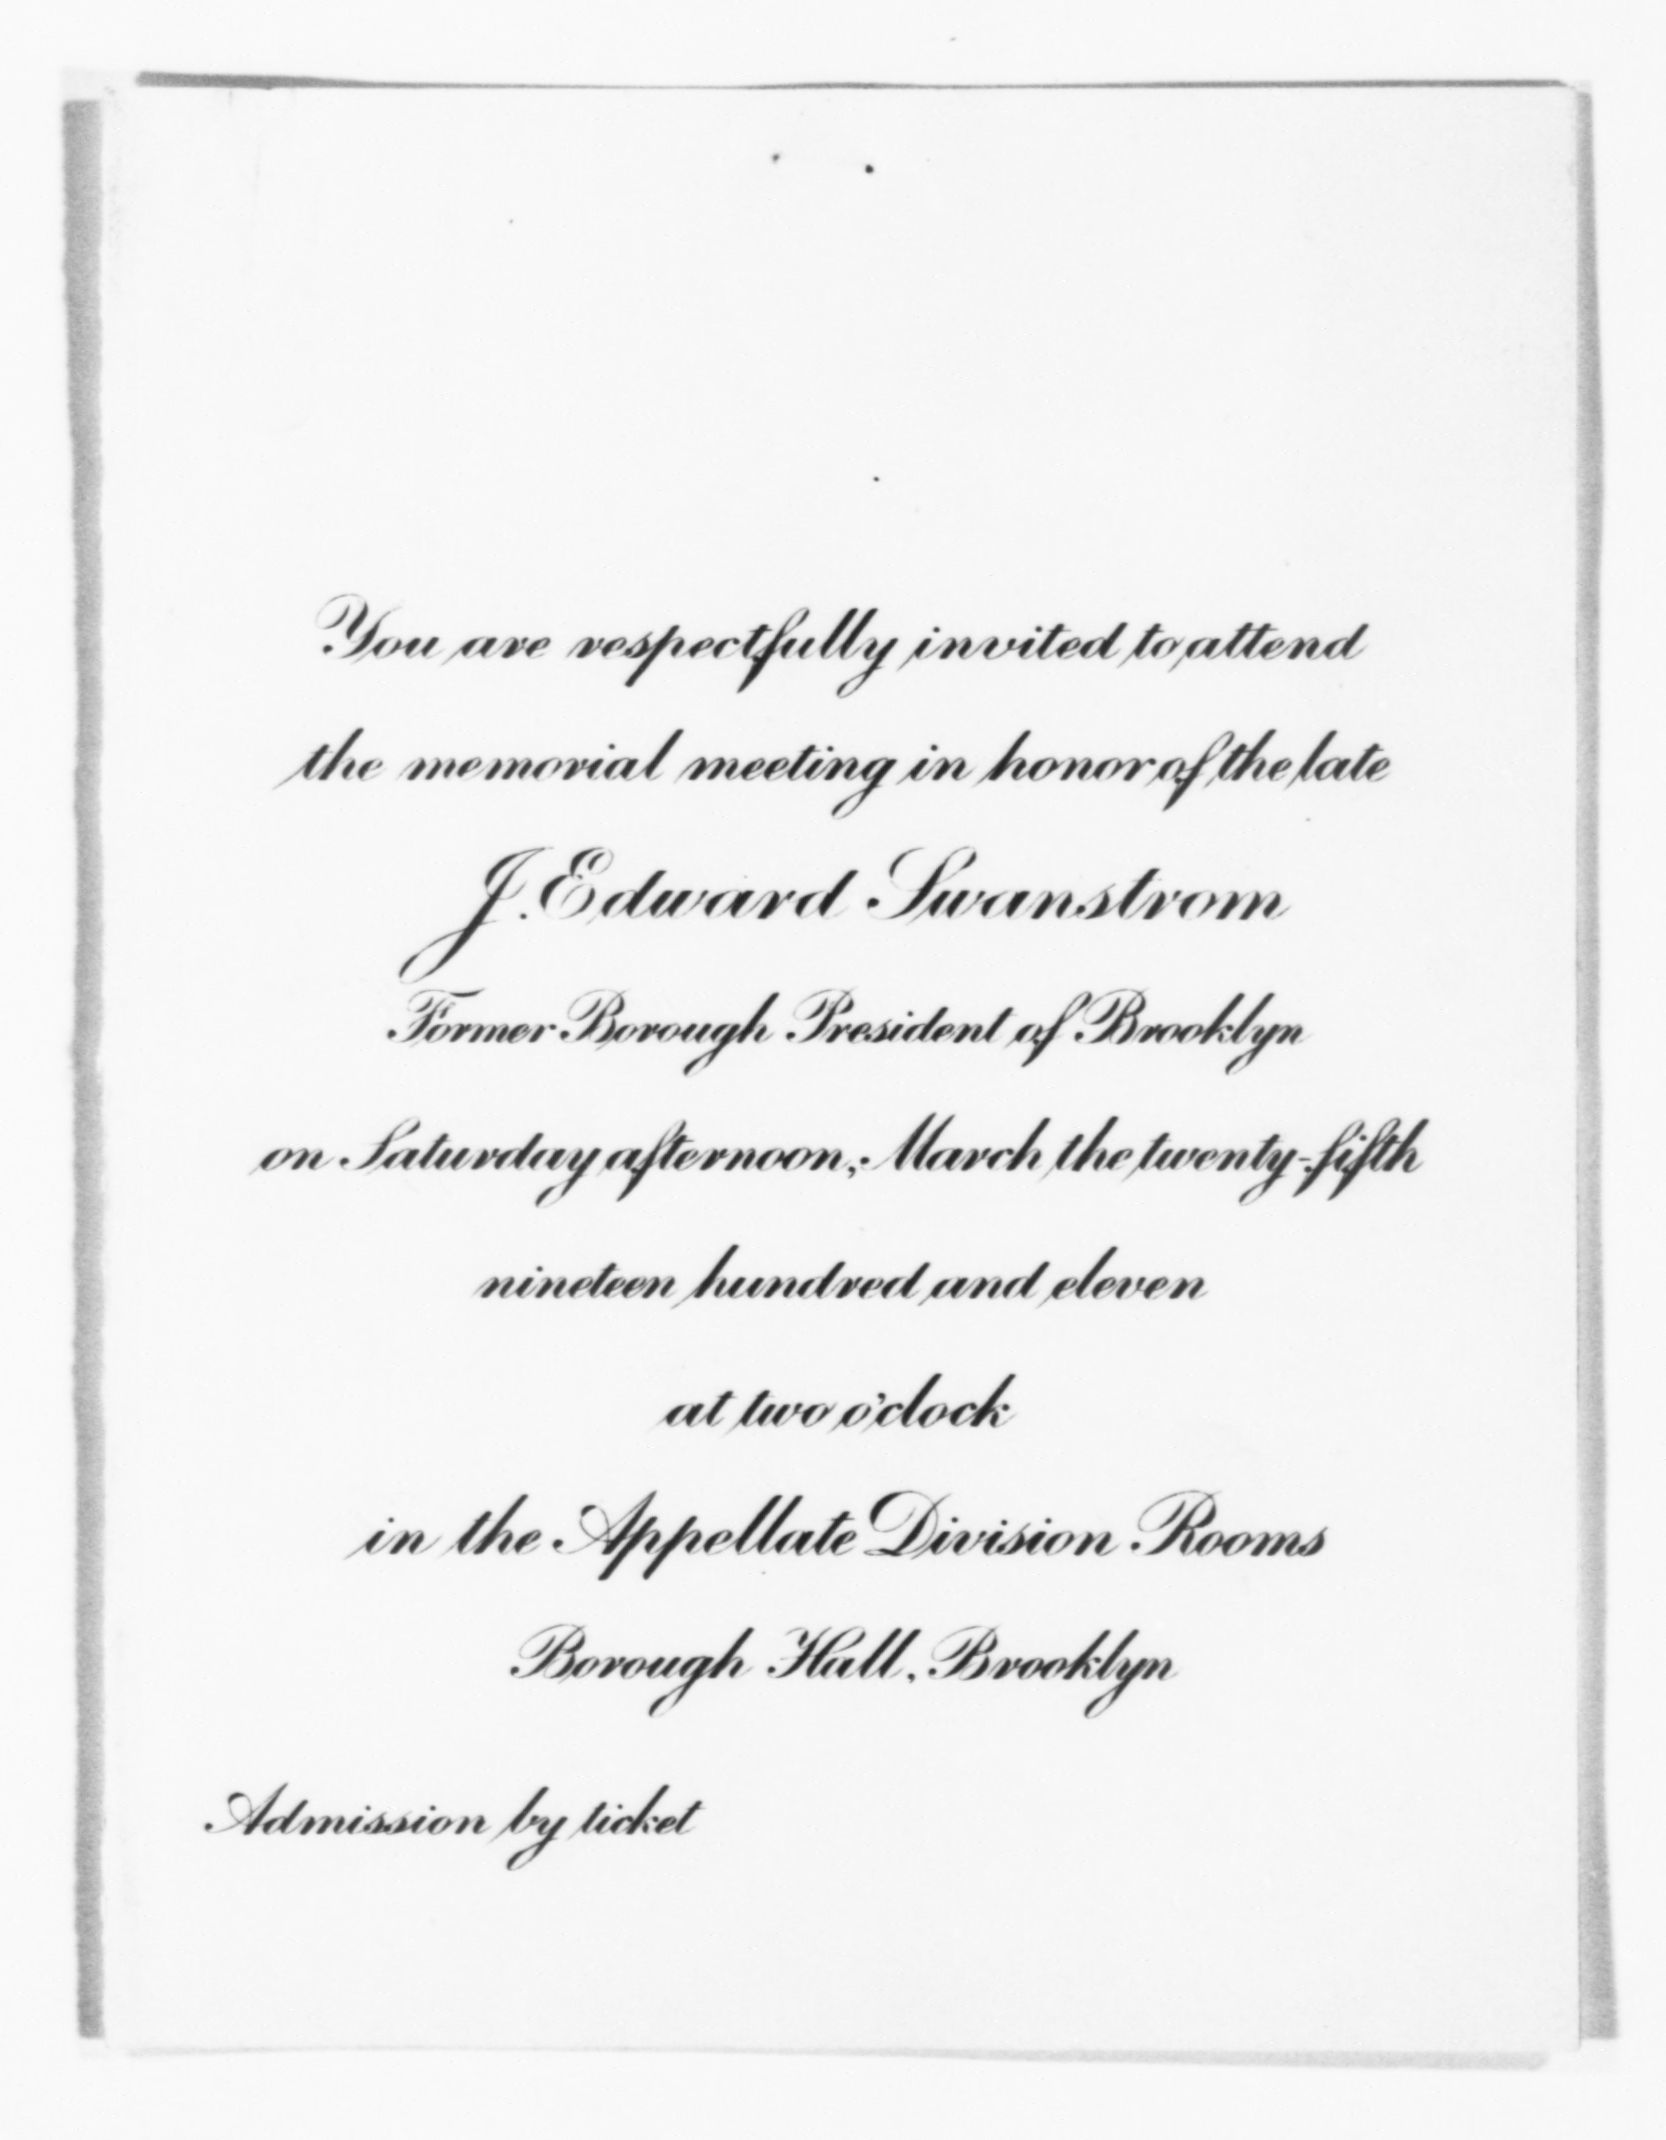 You are respectfully invited to attend
the memorial meeting in honor of the late
J. Edward Swanstrom
Former Borough President of Brooklyn
on Saturday afternoon, March the twenty-fifth
nineteen hundred and eleven
at two o'clock
in the Appellate Division Rooms
Borough Hall, Brooklyn
Admission by ticket